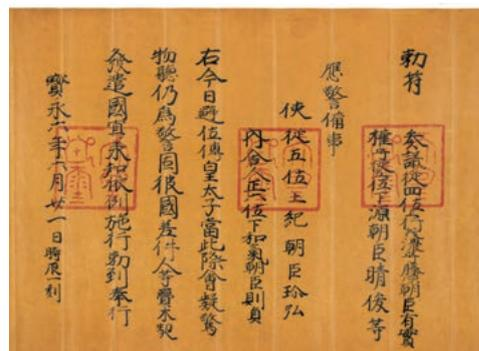 勅符
参議従四位行 藤朝臣有
権守従位下源朝臣晴俊等
應警備事
使従五位下紀朝臣玲弘
内舎人正六位下和氣朝臣則貞
右今日避位傳皇太子當此際會疑驚
物聴仍爲警固彼國差件人等賷木契
發遣國宜承知依例施行勅到奉行
寳永六年六月廿一日時辰一刻